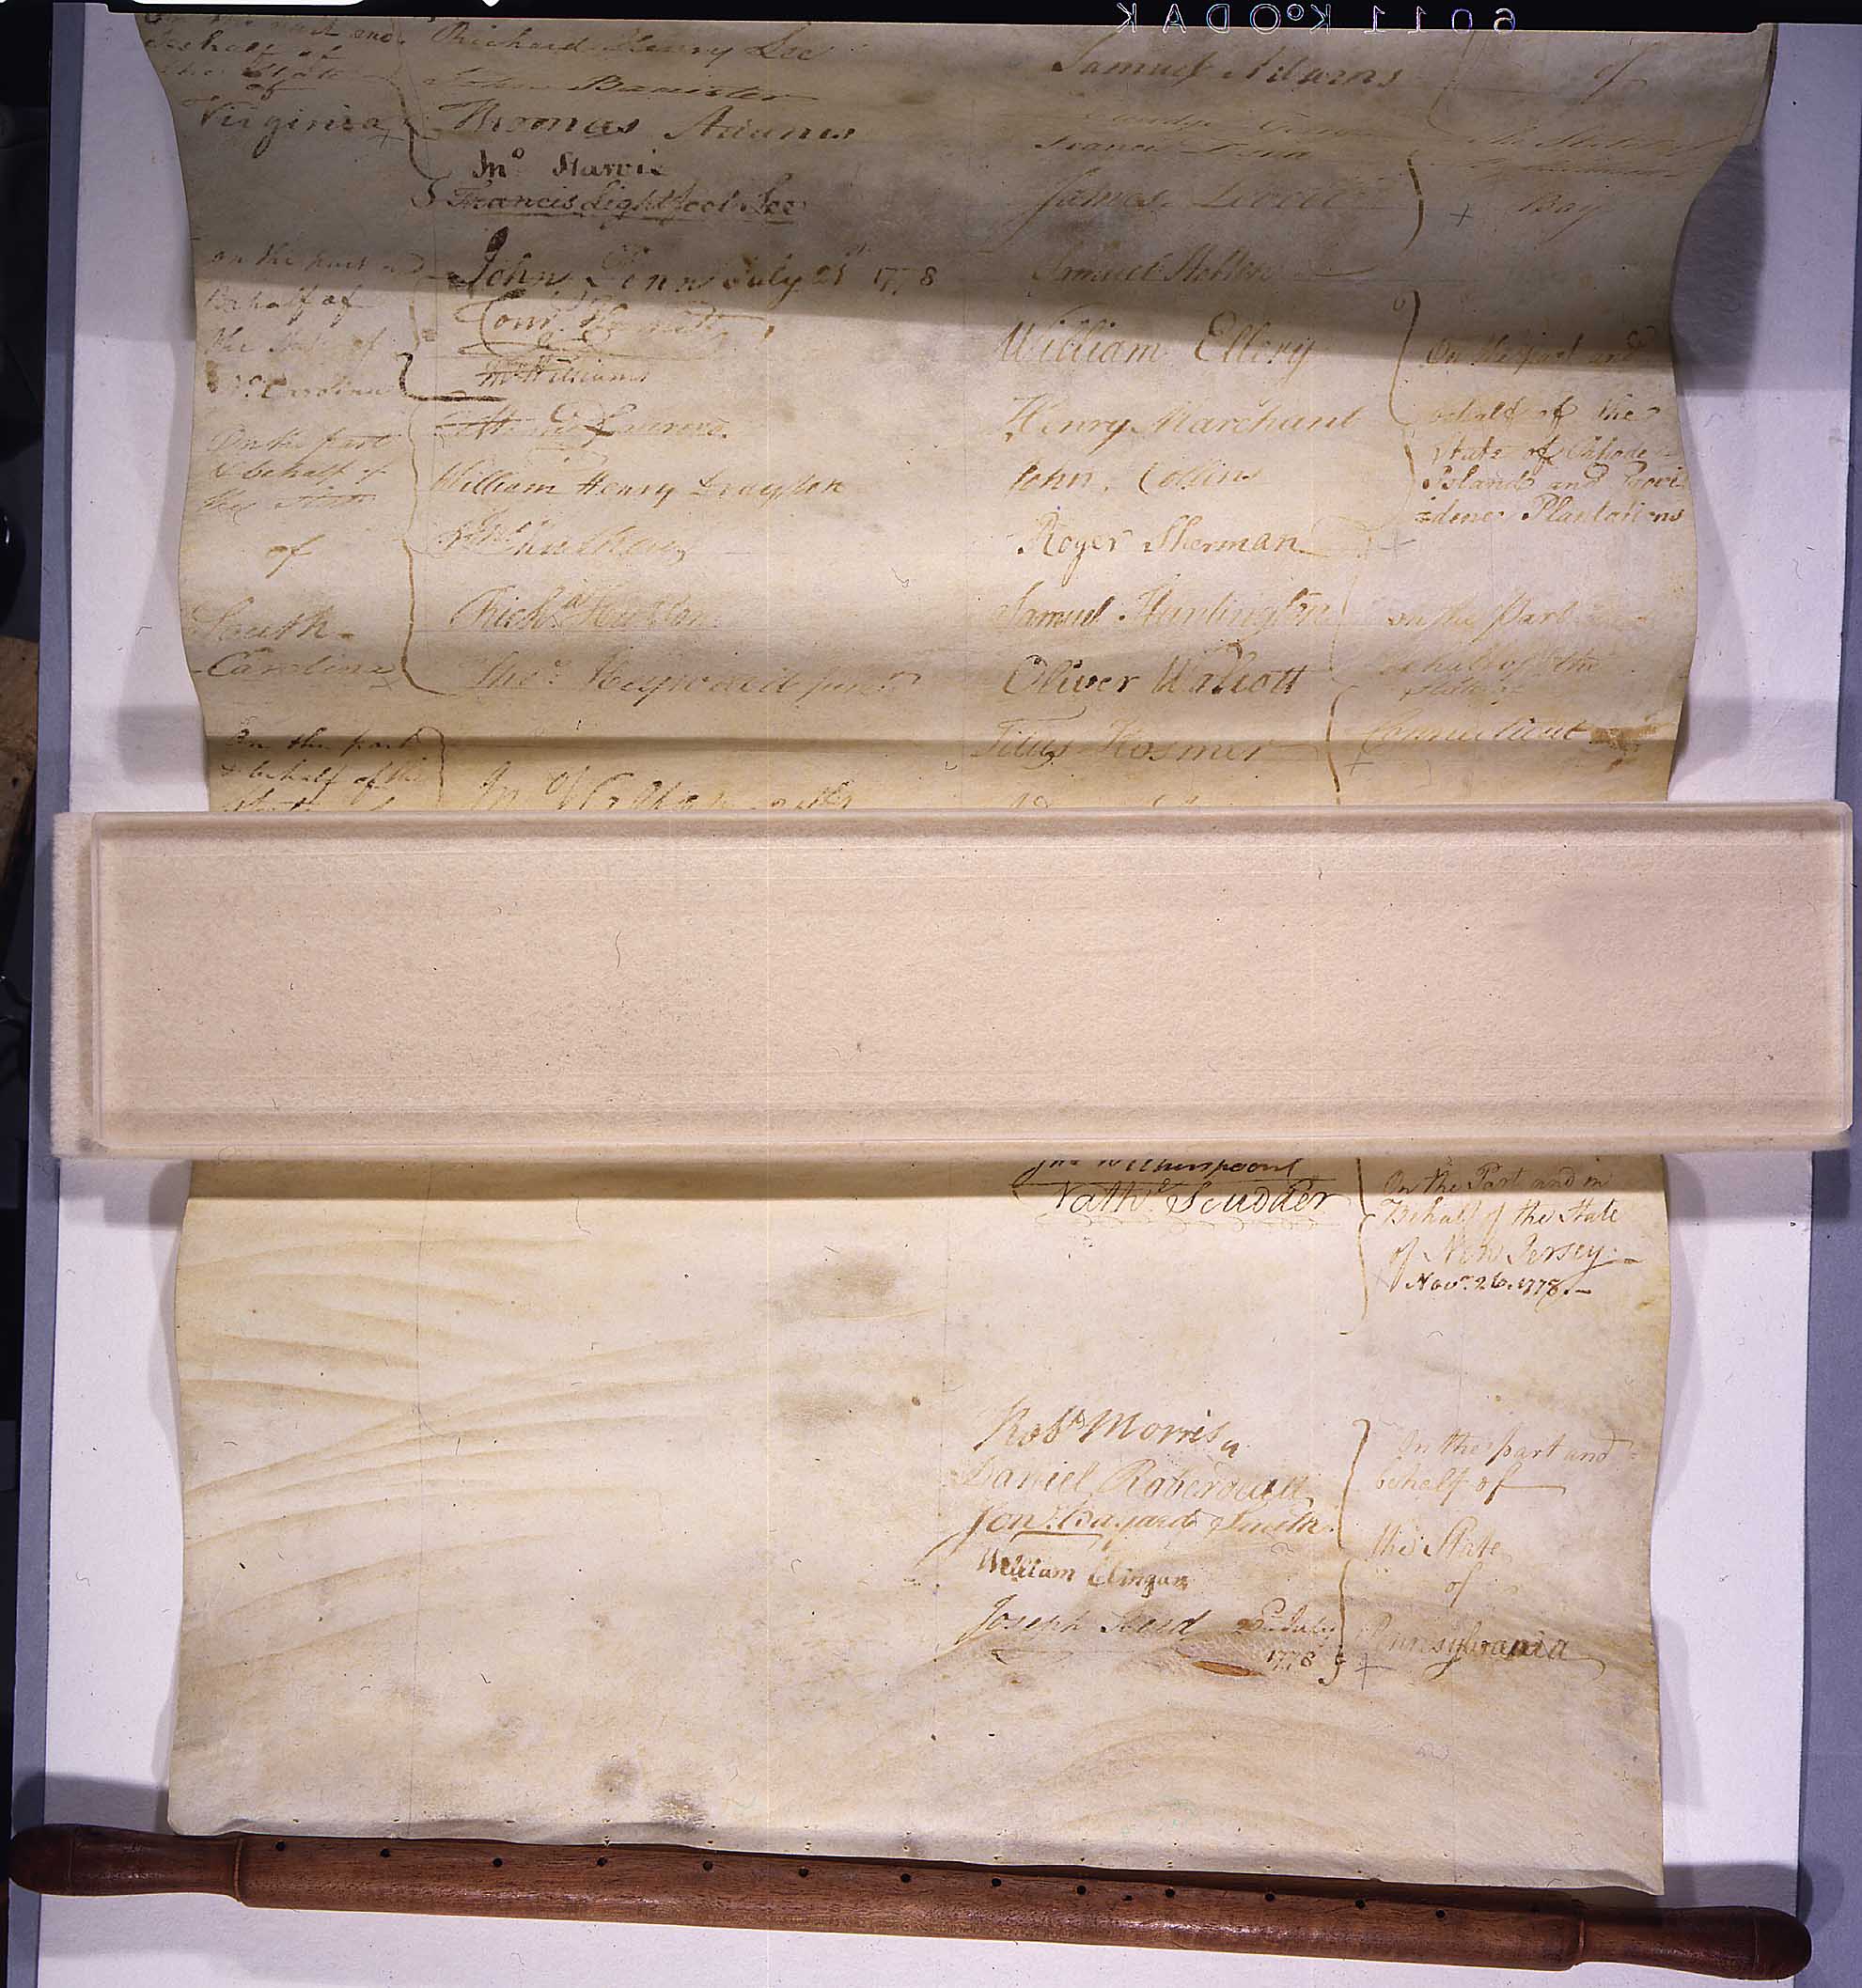 KODAK 6011
On the part and
behalf of
the State
of
Virginia
Richard Henry Lee
John Banister
Thomas Adams
Jno Harvie
Francis Lightfoot Lee
on the part and
Behalf of
the State of
No. Carolina
John Penn July 21st 1778
Corns Harnett
Jno Williams
On the part
& behalf of
the State
of
South-
Carolina
Henry Laurens.
William Henry Drayton
Jno Mathews
Richd Hutson
Thos. Heyward junr.
On the part
& behalf of the
Samuel Adams
Francis Dana
James Lovell
Samuel Holten
of
Bay
William Ellery
Henry Marchant
John Collins
On the part and
behalf of the
State of Rhode-
Island and Provi
=dence Plantations
Roger Sherman
Samuel Huntington
Oliver Wolcott
Titus Hosmer
on the Part and
behalf of the
State of
Connecticut
Jno Witherspoon
Nathl. Scudder
On the Part and in
Behalf of the State
of New Jersey.-
Novr. 26. 1778.-
Robt Morris
Daniel Roberdeau
Jona. Bayard Smith.
William Clingan
Joseph Reed 22d July
1778
On the part and
behalf of
the State
of
Pennsylvania